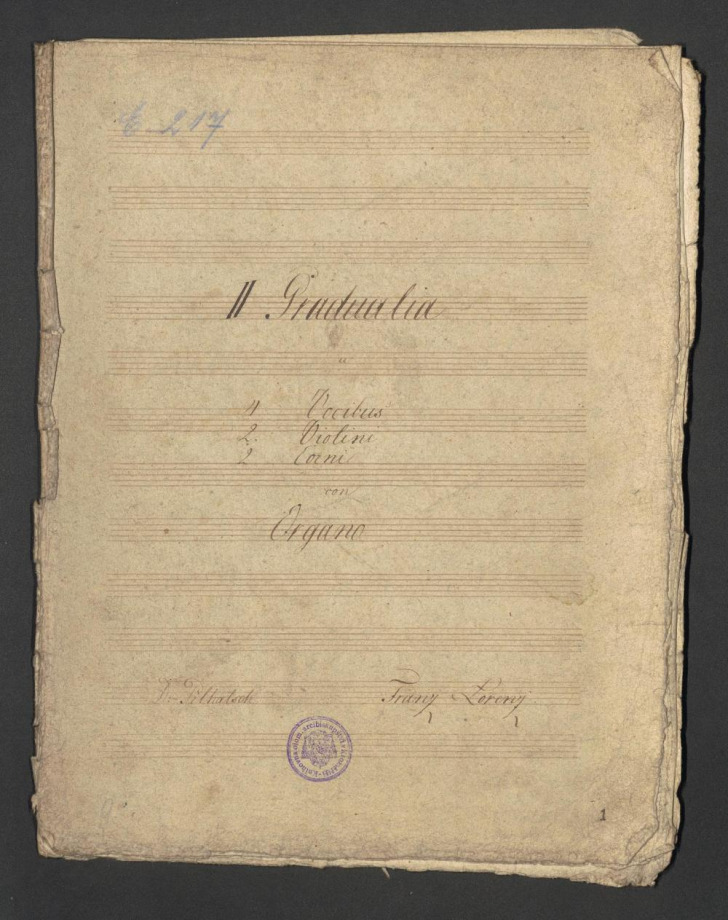 E 217
II Gradualia
a
4 Vocibus
2. Violini
2 Corni
con
Organo
Franz Lorenz
1